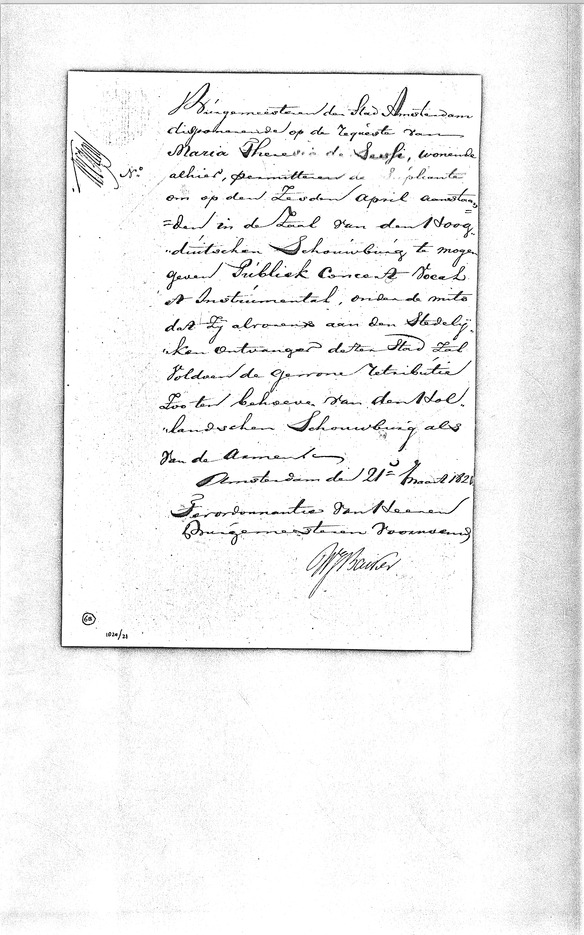 Burgemeesteren der Stad Amsterdam
disponerende op de requeste van
Maria Theresia de Sessi, wonende
alhier, permitteren de Supliante
om op den Zesden April aanstaan
=den in de Zaal van den Hoog-
duitschen Schouwburg te mogen
geven Publiek Concert Vocal
et Instrumental, onder de mits
dat Zij alvorens aan den Stedelij-
ken ontvanger dezer Stad Zal
Voldoen de gewone retributie
Zoo ten behoeve van den Hol-
landschen Schouwburg als
van de Armen
Amsterdam de 21e Maart
Ter ordonnantie van Heeren
Burgemeesteren voornoemd
No
68
1020/23